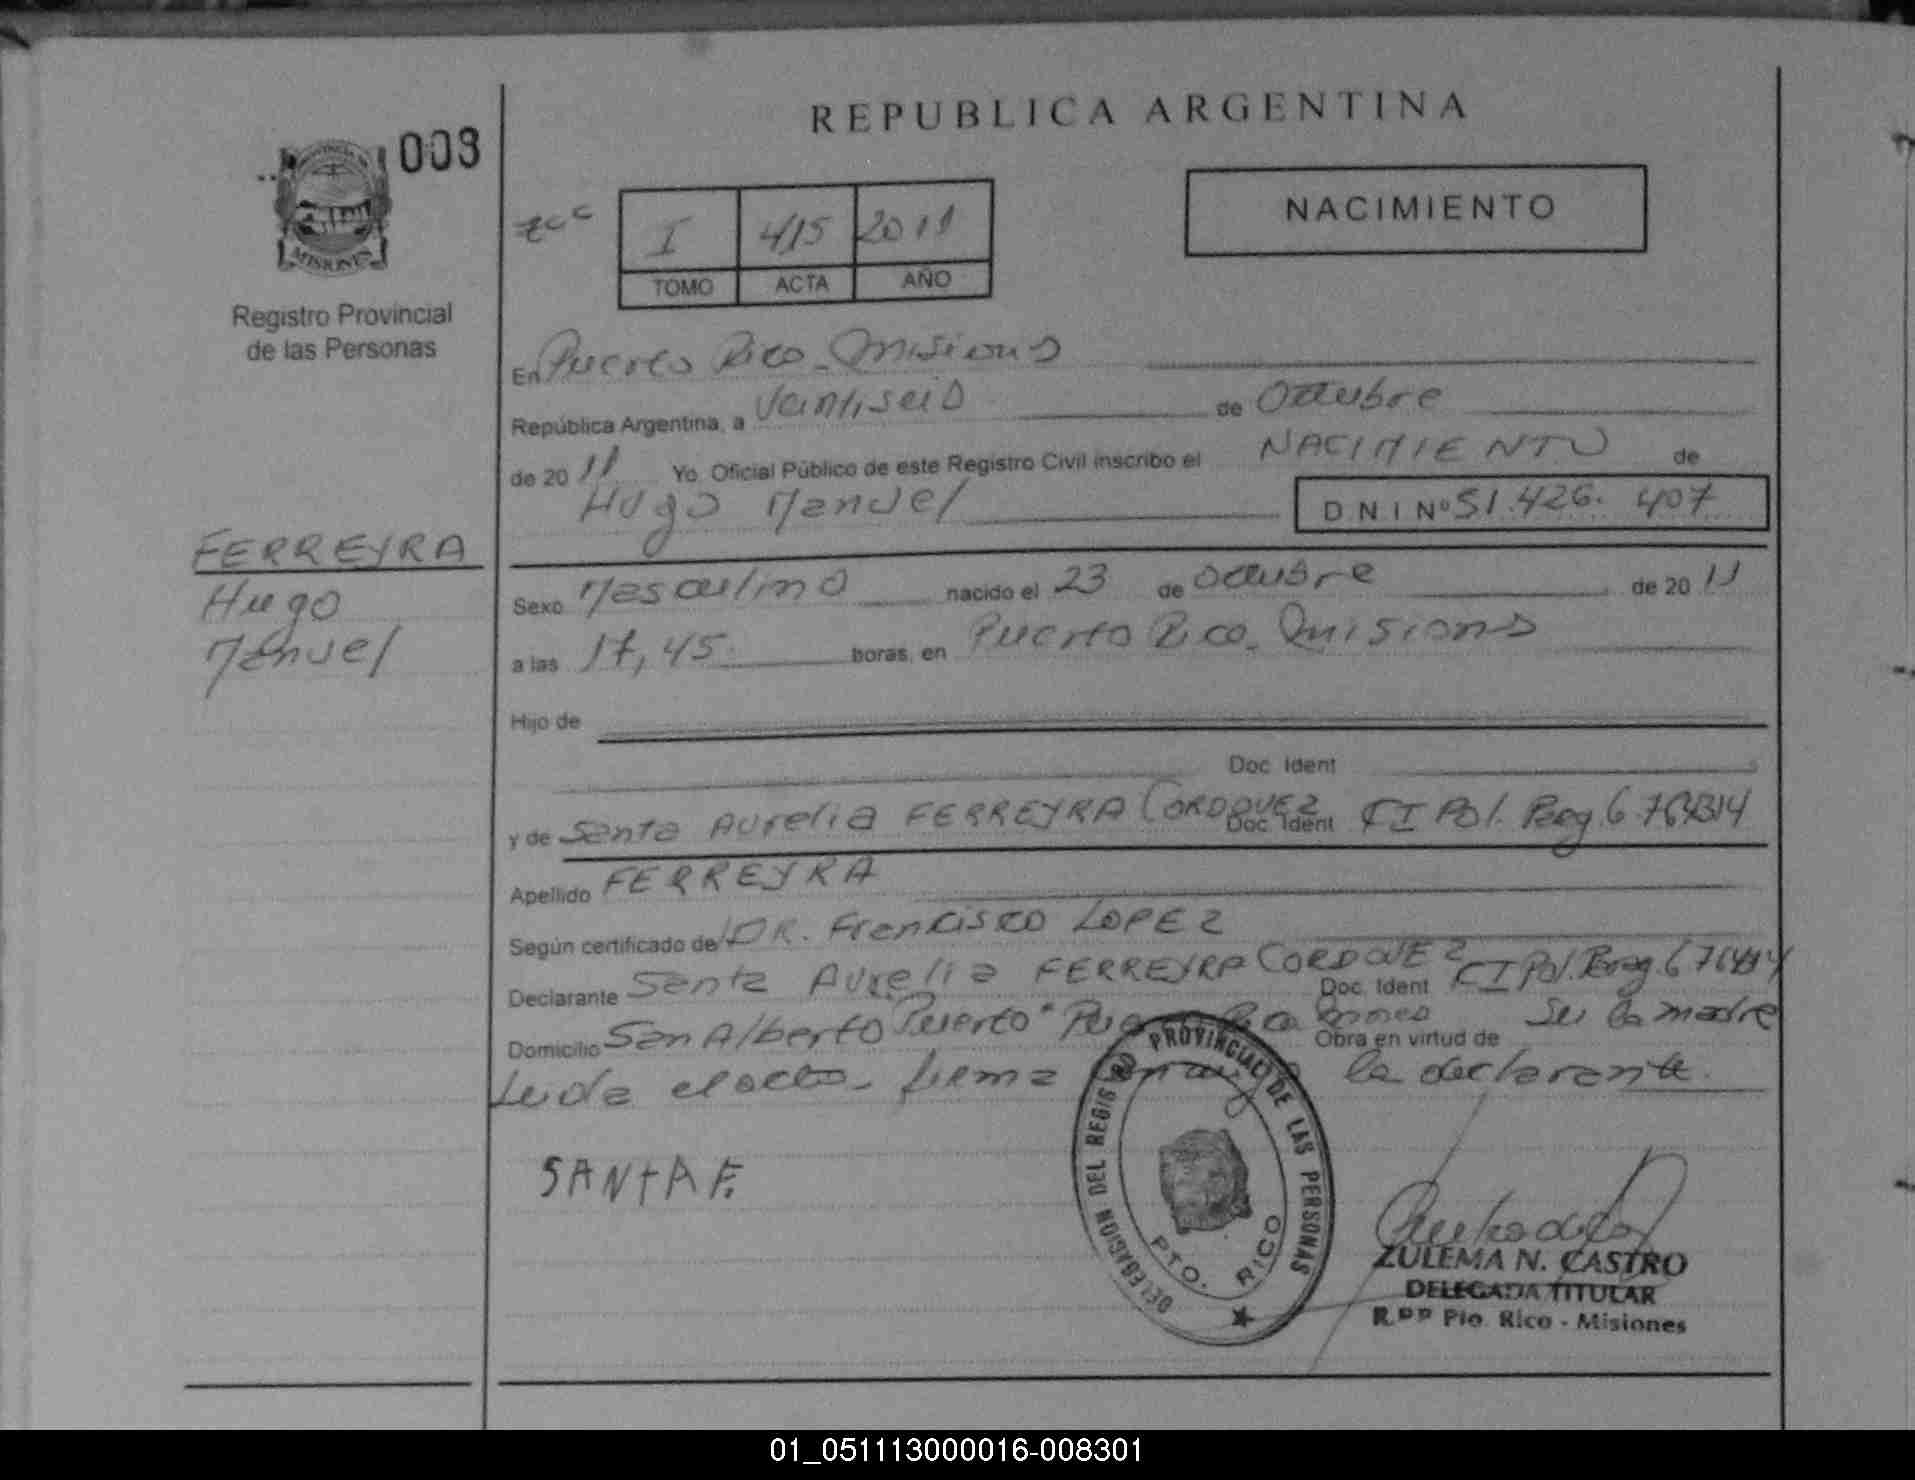 008
PROVINCIA DE
MISIONES
Registro Provincial
de las Personas
FERREYRA
Hugo
Manuel
REPUBLICA ARGENTINA
NACIMIENTO
I 415 2011
TOMO ACTA AÑO
En Puerto Rico - Misiones
República Argentina, a Veintiseis de Octubre
de 2011 Yo Oficial Público de este Registro Civil inscribo el NACIMIENTO de
Hugo Manuel D N I Nº 51.426.407
Sexo Masculino nacido el 23 de Octubre de 2011
a las 17,45 horas, en Puerto Rico - Misiones
Hijo de
Doc Ident
y de Santa Aurelia FERREYRA CORDOVEZ Doc Ident CI Pol. Parag.
Apellido FERREYRA
Según certificado de DR. Francisco LOPEZ
Declarante Santa Aurelia FERREYRA CORDOVEZ Doc. Ident CI Pol. Parag.
Domicilio San Alberto Puerto - Puerto Rico Mnes Obra en virtud de Ser la madre
Leida el acta - firma conmigo la declarante.
SANTA F.
DELEGACION DEL REGISTRO PROVINCIAL DE LAS PERSONAS
PTO. RICO
ZULEMA N. CASTRO
DELEGADA TITULAR
R.P.P Pto. Rico - Misiones
01_051113000016-008301